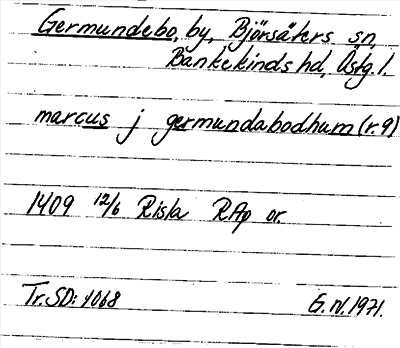 Germundebo, by, Björsäters sn,
Bankekinds hd, Östg. l.
marcus j germundabodhum (r. 9)
1409 12/6 Risla RAp or.
Tr. SD: 1068 G. IV. 1971.